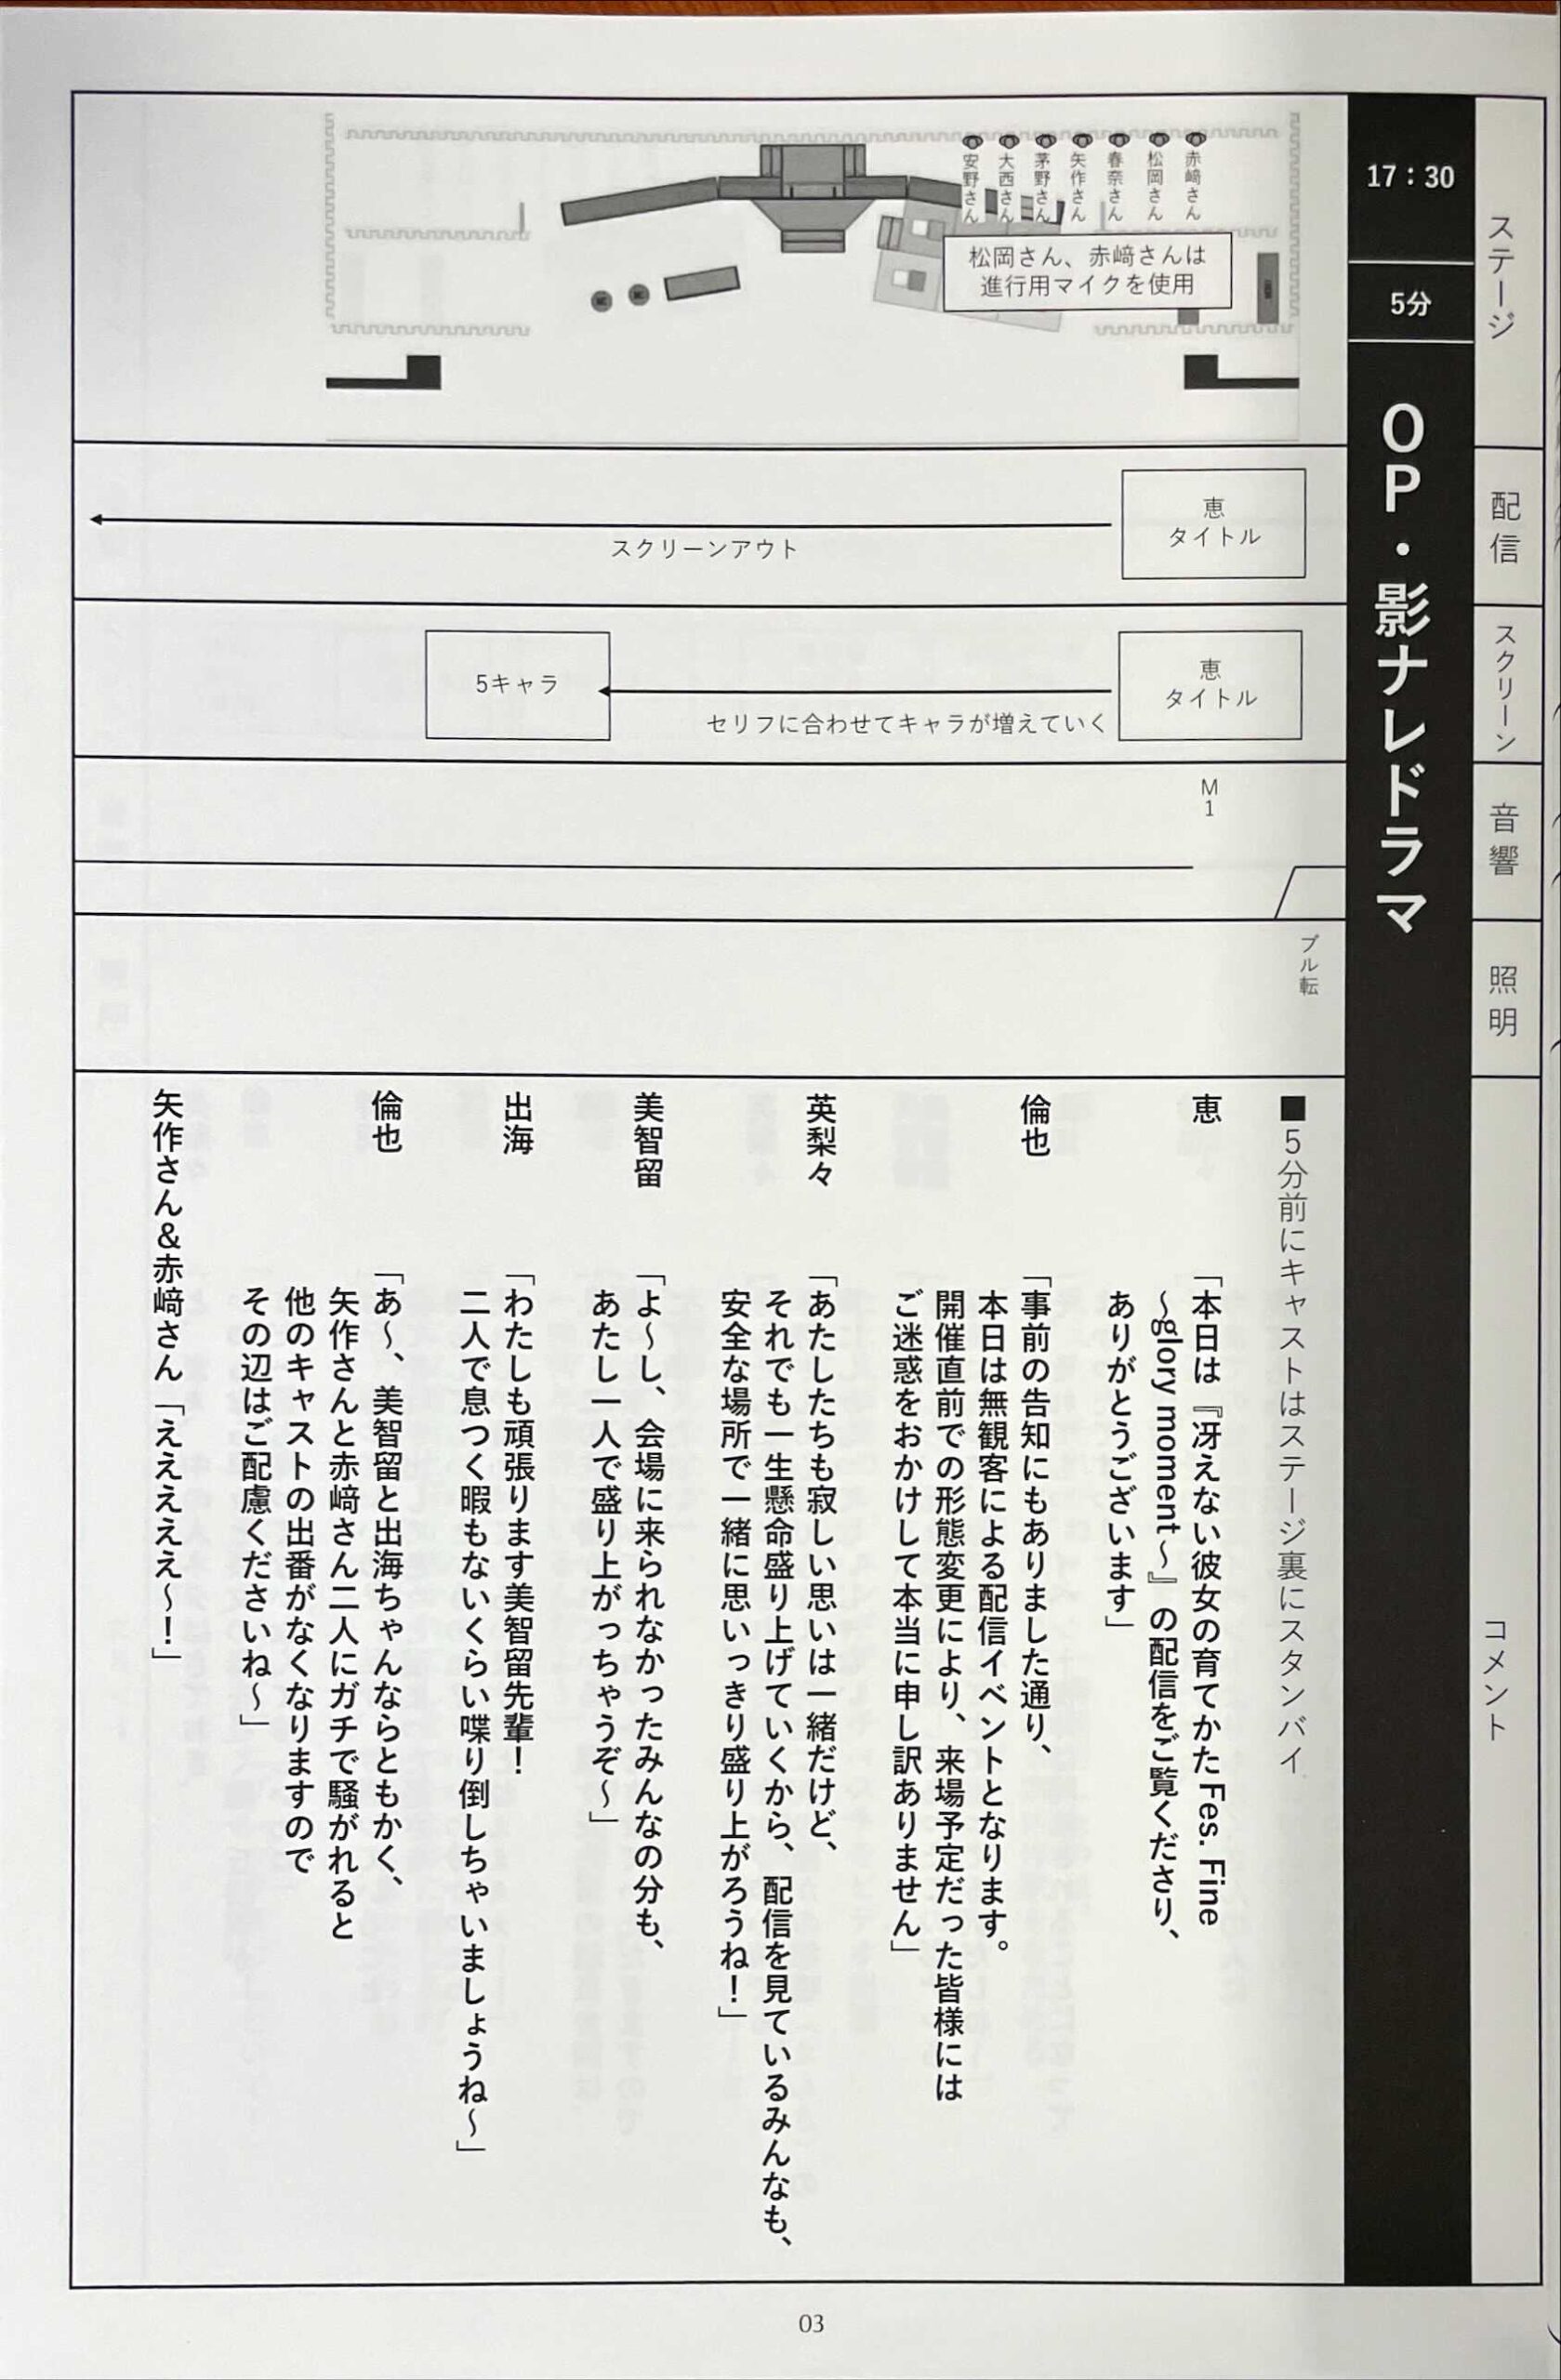 ステージ
配信
スクリーン
音響
照明
コメント
17：30
5分
OP・影ナレドラマ
赤﨑さん
松岡さん
春奈さん
矢作さん
茅野さん
大西さん
安野さん
松岡さん、赤﨑さんは
進行用マイクを使用
恵
タイトル
スクリーンアウト
恵
タイトル
セリフに合わせてキャラが増えていく
5キャラ
M1
ブル転
■5分前にキャストはステージ裏にスタンバイ
恵　「本日は『冴えない彼女の育てかた Fes. Fine
～glory moment～』の配信をご覧くださり、
ありがとうございます」
倫也　「事前の告知にもありました通り、
本日は無観客による配信イベントとなります。
開催直前での形態変更により、来場予定だった皆様には
ご迷惑をおかけして本当に申し訳ありません」
英梨々　「あたしたちも寂しい思いは一緒だけど、
それでも一生懸命盛り上げていくから、配信を見ているみんなも、
安全な場所で一緒に思いっきり盛り上がろうね！」
美智留　「よ～し、会場に来られなかったみんなの分も、
あたし一人で盛り上がっちゃうぞ～」
出海　「わたしも頑張ります美智留先輩！
二人で息つく暇もないくらい喋り倒しちゃいましょうね～」
倫也　「あ～、美智留と出海ちゃんならともかく、
矢作さんと赤﨑さん二人にガチで騒がれると
他のキャストの出番がなくなりますので
その辺はご配慮くださいね～」
矢作さん＆赤﨑さん「ええええ～！」
03